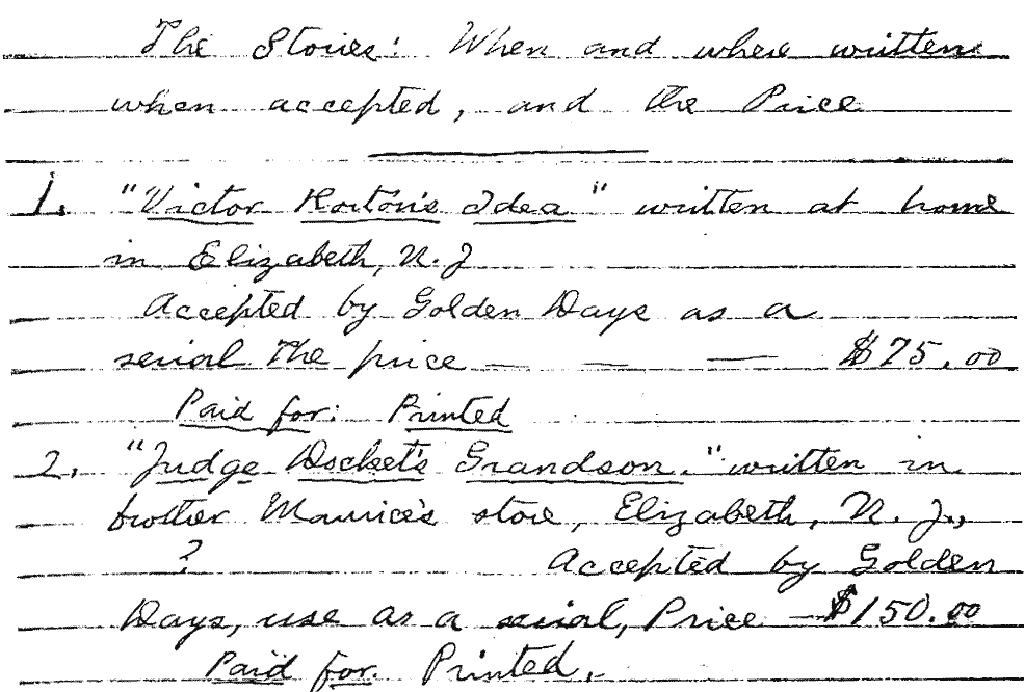 The Stories: When and where written
when accepted, and the Price
1. "Victor Horton's Idea" written at home
in Elizabeth, N. J
Accepted by Golden Days as a
serial The price — — — $75.00
Paid for: Printed
2. "Judge Docket's Grandson." written in
brother Maurice's store, Elizabeth, N. J.,
? Accepted by Golden
Days, use as a serial, Price — $150.00
Paid for. Printed.